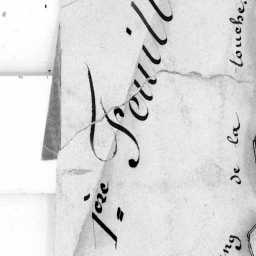 1ère Feuill
ing de la touche.